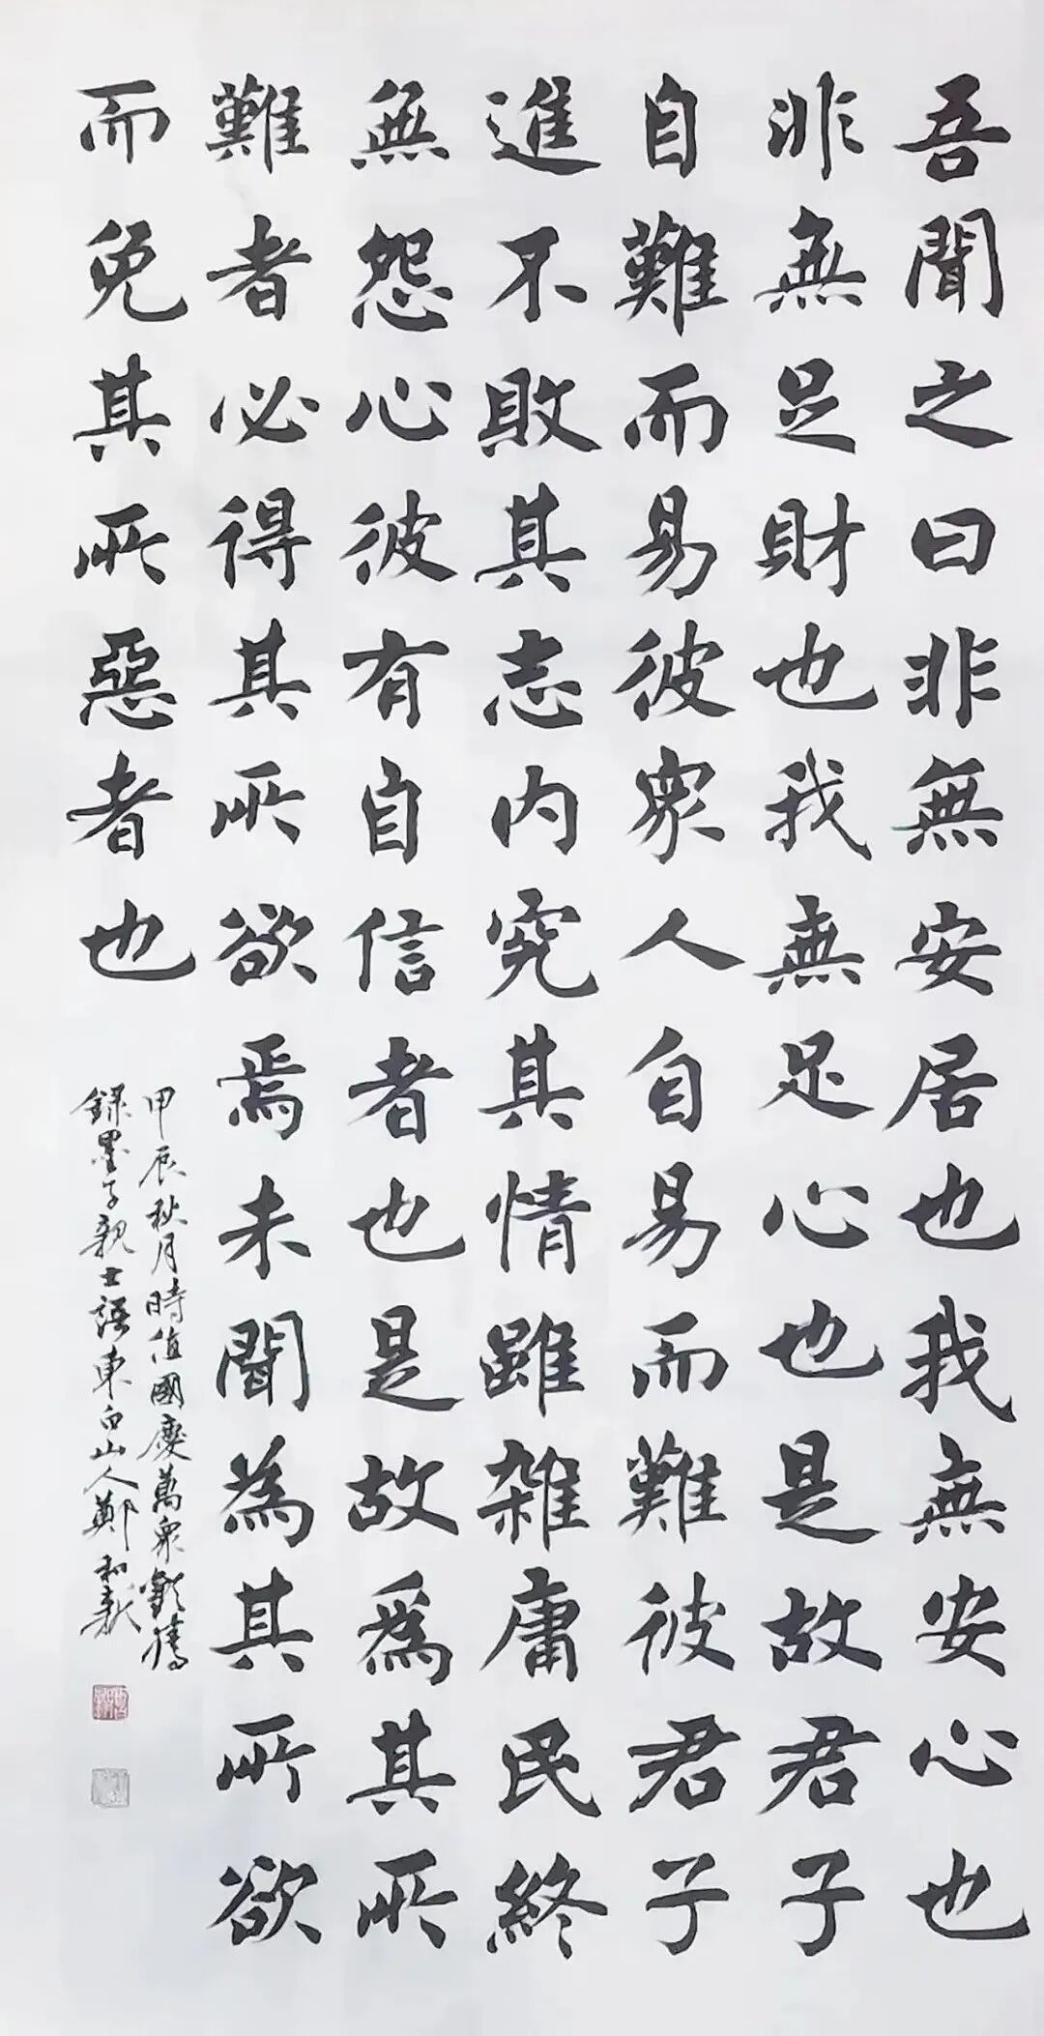 吾聞之曰非無安居也我無安心也
非無足財也我無足心也是故君子
自難而易彼衆人自易而難彼君子
進不敗其志内究其情雖雜庸民終
無怨心彼有自信者也是故爲其所
難者必得其所欲焉未聞為其所欲
而免其所惡者也
甲辰秋月時值國慶萬衆歡騰
錄墨子親士語東白山人鄭和新